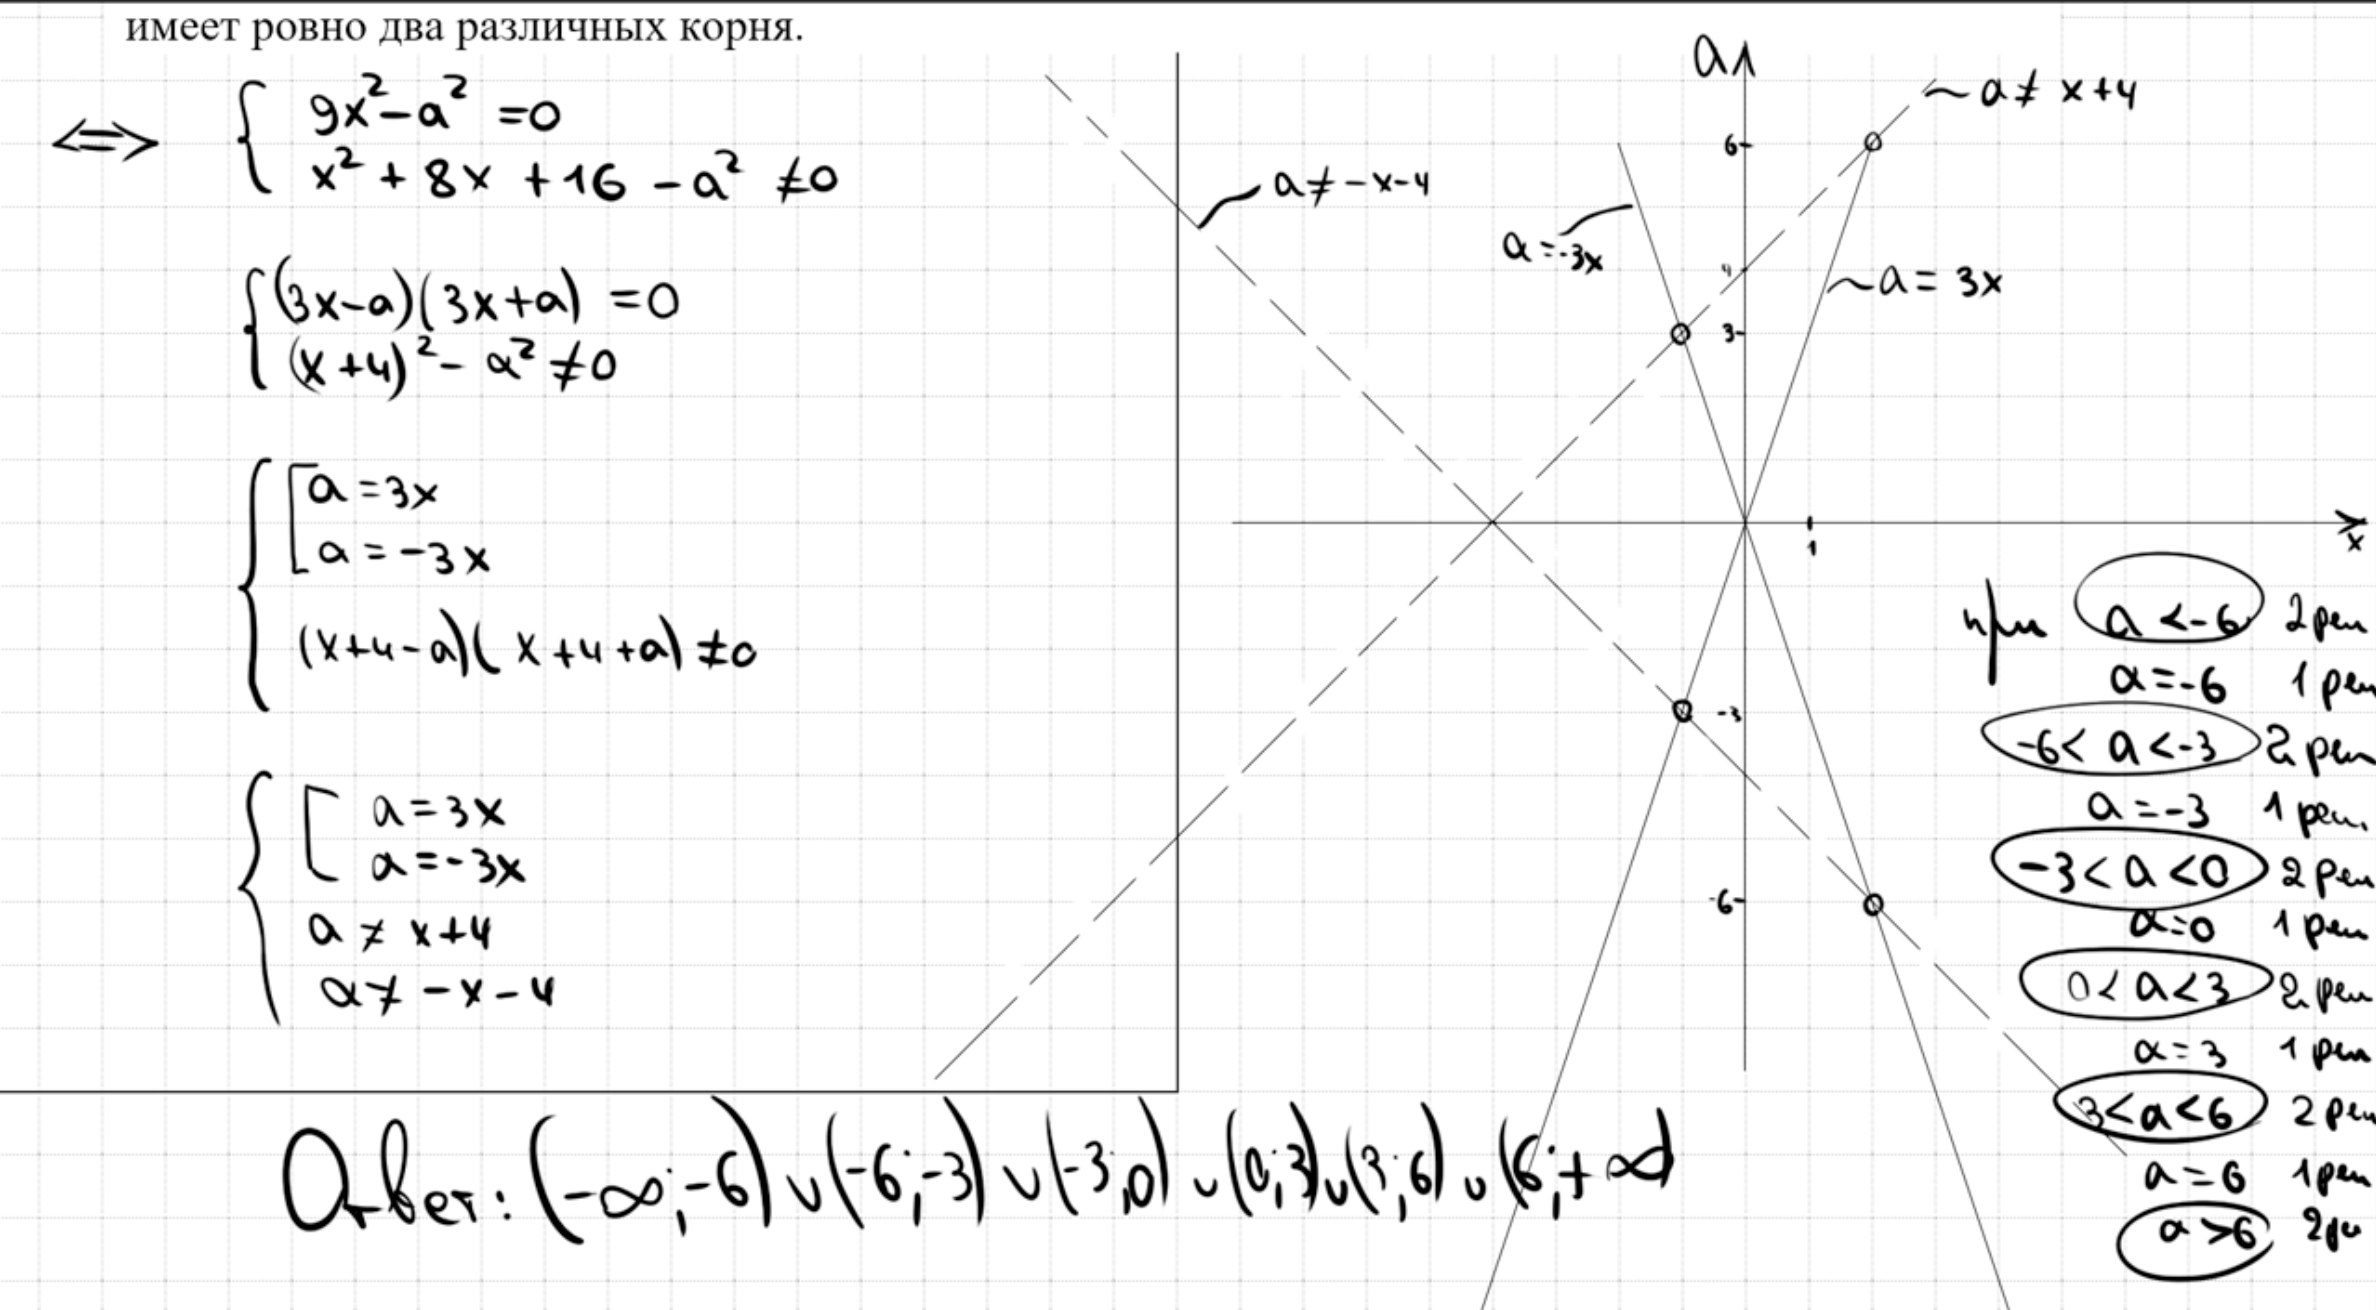 имеет ровно два различных корня.
⟺ { 9x² − a² = 0
x² + 8x + 16 − a² ≠ 0
{ (3x−a)(3x+a) = 0
(x+4)² − a² ≠ 0
{ [ a = 3x
a = −3x
(x+4−a)(x+4+a) ≠ 0
{ [ a = 3x
a = −3x
a ≠ x+4
a ≠ −x−4
a
a ≠ x+4
6
a ≠ −x−4
a = −3x
4
a = 3x
3
1
x
−3
−6
при a < −6 2 реш
a = −6 1 реш
−6 < a < −3 2 реш
a = −3 1 реш.
−3 < a < 0 2 реш
a = 0 1 реш
0 < a < 3 2 реш
a = 3 1 реш
3 < a < 6 2 реш
a = 6 1 реш
a > 6 2 реш
Ответ: (−∞; −6) ∪ (−6; −3) ∪ (−3; 0) ∪ (0; 3) ∪ (3; 6) ∪ (6; +∞)